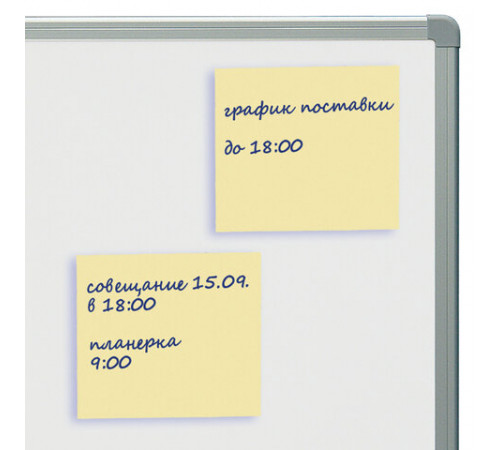 график поставки
до 18:00
совещание 15.09.
в 18:00
планерка
9:00